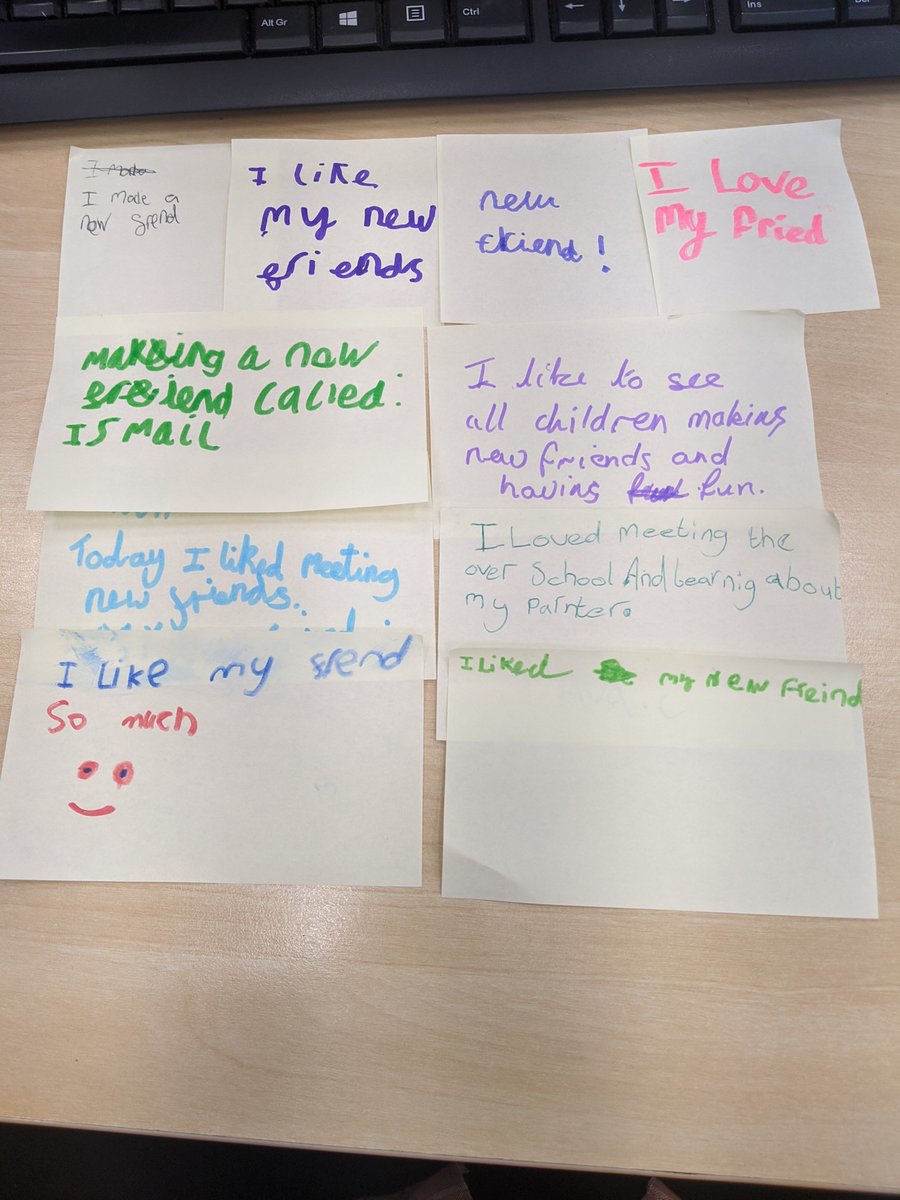 Alt Gr
Ctrl
Ins
I made a
new frend
I like
my new
friends
new
friend!
I Love
My fried
making a now
friend called:
ISMAIL
I like to see
all children making
new friends and
having fun.
Today I liked meeting
new friends.
I Loved meeting the
over School And Learnig about
my parnter.
I Like my frend
So much
I Liked my new freind